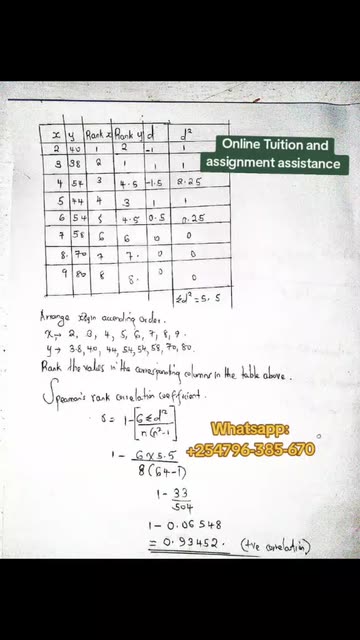 x y Rank x Rank y d d²
2 40 1 2 -1 1
3 38 2 1 1 1
4 54 3 4.5 -1.5 2.25
5 44 4 3 1 1
6 54 5 4.5 0.5 0.25
7 58 6 6 0 0
8. 70 7 7. 0 0
9 80 8 8. 0 0
Σd² = 5.5
Online Tuition and
assignment assistance
Arrange x, y in ascending order.
x → 2, 3, 4, 5, 6, 7, 8, 9.
y → 38, 40, 44, 54, 54, 58, 70, 80.
Rank the values in the corresponding columns in the table above.
Spearman's rank correlation coefficient.
= 1 - [6 Σd² / n(n²-1)]
1 - 6 x 5.5 / 8(64-1)
1 - 33 / 504
1 - 0.06548
= 0.93452. (+ve correlation)
Whatsapp:
+254796-385-670